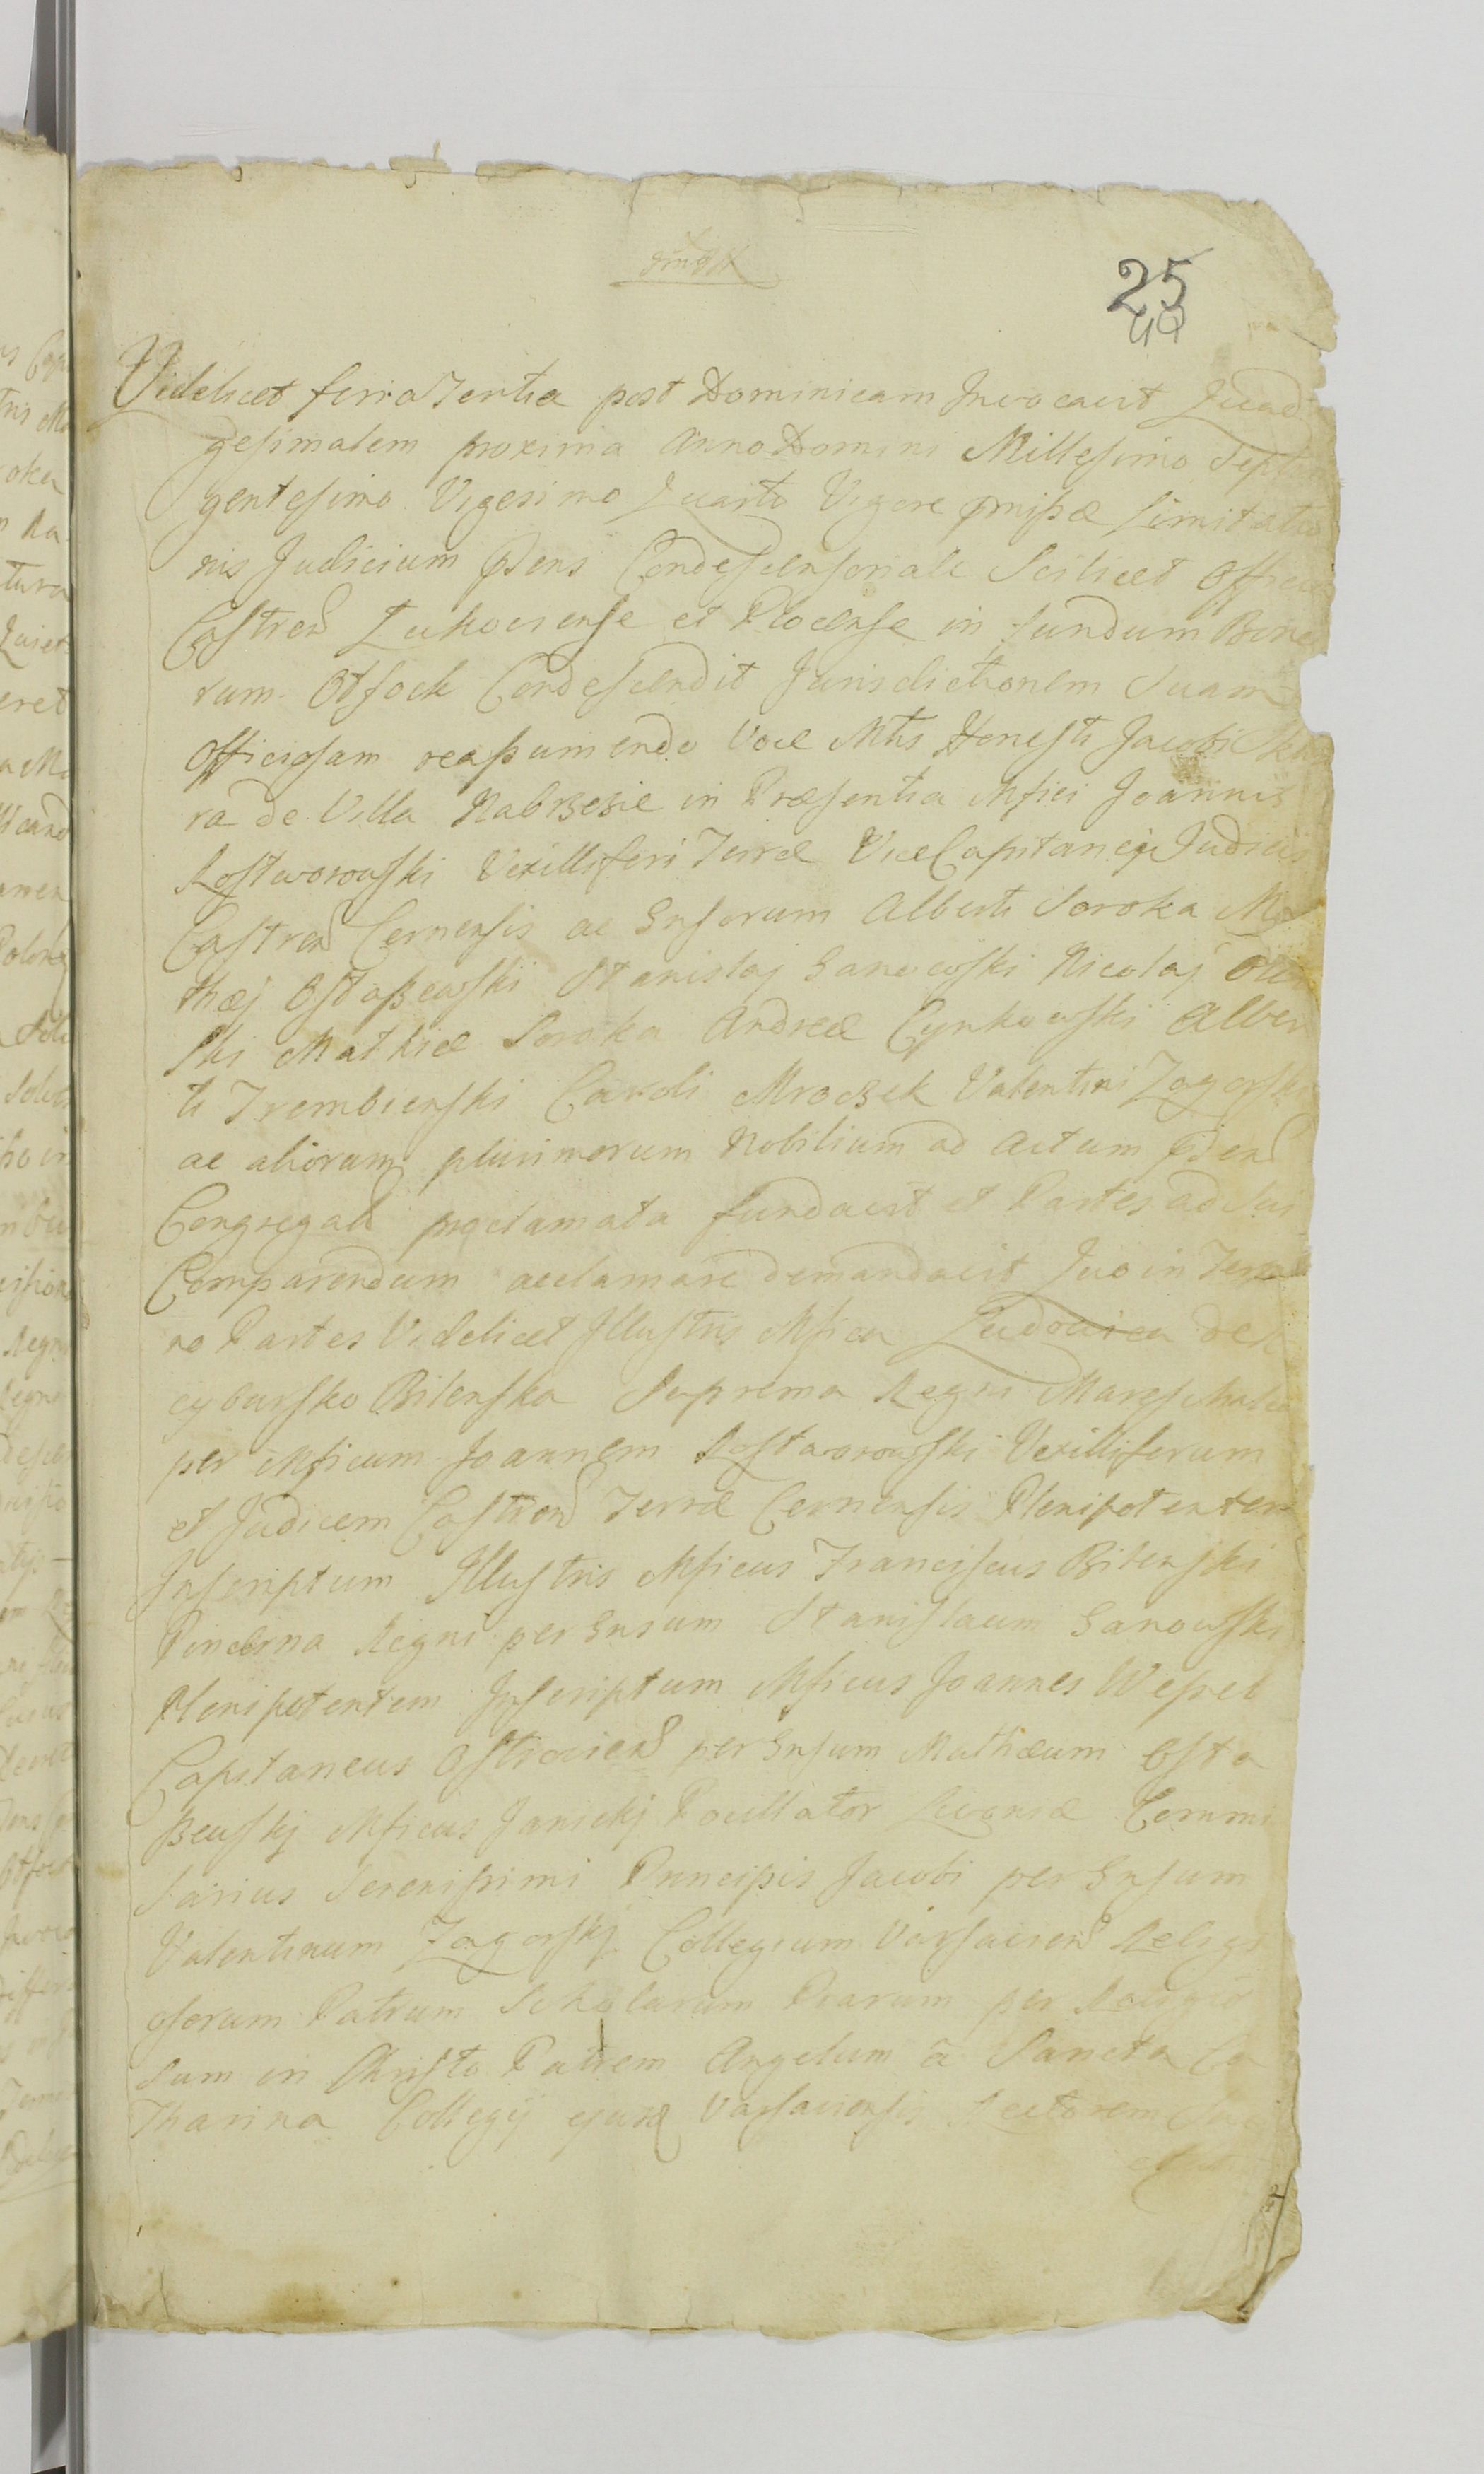 25
40
Videlicet feria Tertia post Dominicam Invocavit Quad
gesimalem proxima Anno Domini Millesimo Septin
gentesimo Vigesimo Quarto Vigore pmissæ Limitatio
nis Judicium pñens Condescensonale Scilicet Offici
Castren Lukoviense et Plocense in fundum Bono
rum Otsock Condescendit Jurisdictionem Suam
Officiosam reassumendo Voce Mtis Honesti Jacobi
ra de Villa Nabrzezie in Præsentia Mfici Joannis
Rostworowski Vexilliferi Terræ ViceCapitanei Judicis
Castren Cernensis ac Gnsorum Alberti Soroka Ma
thæj Ostaszewskij Stanislaj Sarnowski Nicolaj
ski Mathiæ Soroka Andreæ Cynkowski Alber
ti Trembienski Caroli Mroczek Valentini Zagorski
ac aliorum plurimorum Nobilium ad Actum pñen
Congregat proclamata fundavit et Partes ad Sui
Comparendum acclamare demandavit Quo in Termi
no Partes Videlicet Illustris Mfica Ludovica de
cybursko Bilenska Suprema Regni Mareschalca
per Mficum Joannem Rostworowski Vexilliferum
et Judicem Castren Terræ Cernensis Plenipotentem
Inscriptum Illustris Mficus Franciscus Bilenski
Pincerna Regni per Gnsum Stanislaum Sarnowski
Plenipotentem Inscriptum Mficus Joannes Wessel
Capitaneus Ostrovien per Gnsum Mathæum Osta
szewskj Mficus Janickj Pocillator Livoniæ Commi
sarius Serenissimi Principis Jacobi per Gnsum
Valentinum Zagorskj Collegium Varsavien Religi
osorum Patrum Scholarum Piarum per Religio
sum in Christo Patrem Angelum a Sancta Ca
tharina Collegij ejusd Varsaviensis Rectorem